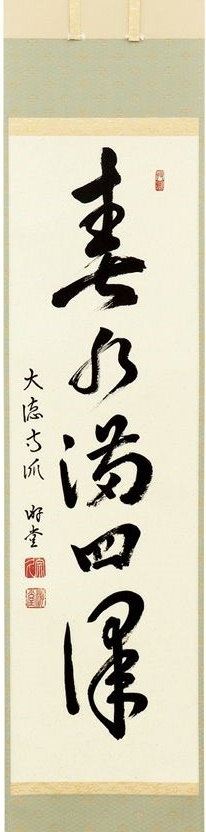 春水満四澤
大徳寺派 明堂